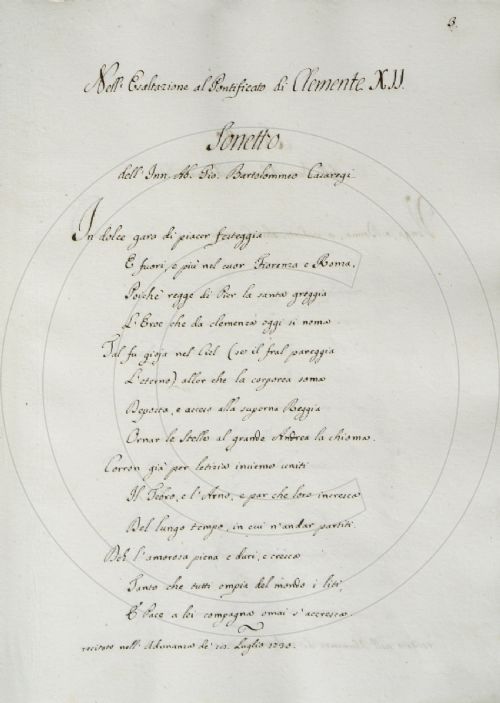 3.
Nell' Esaltazione al Pontificato di Clemente XII.
Sonetto.
dell' Inn. Ab. Gio. Bartolommeo Casaregi
In dolce gara di piacer festeggia
E fuori, e più nel cuor Fiorenza e Roma,
Poichè regge di Pier la santa greggia
L'Eroe che da clemenza oggi si noma.
Tal fu gioja nel Ciel (se il fral pareggia
L'eterno) allor che la corporea soma
Deposta, e asceso alla superna Reggia
Ornar le Stelle al grande Andrea la chioma.
Corron già per letizia insieme uniti
Il Tebro, e l'Arno, e par che loro incresca
Del lungo tempo, in cui n'andar partiti.
Deh l'amorosa piena e duri, e cresca
Tanto che tutti empia del mondo i liti,
E Pace a lei compagna omai s'accresca.
recitato nell' Adunanza de' Luglio 1730.